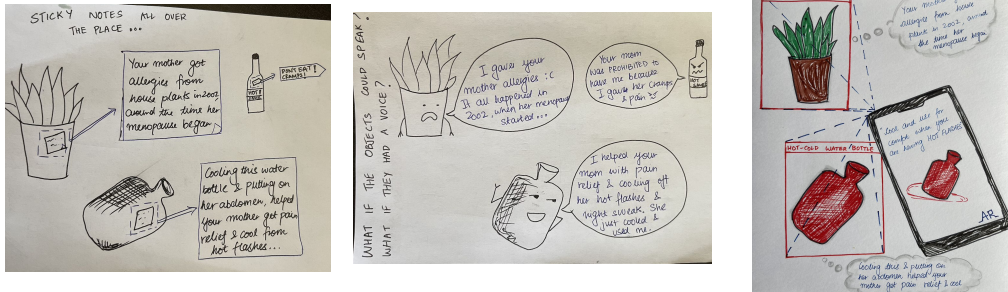 STICKY NOTES ALL OVER
THE PLACE ...
Your mother got
allergies from
house plants in 2002
around the time her
menopause began
DON'T EAT!
CRAMPS!
HOT
SAUCE
Cooling this water
bottle & putting on
her abdomen, helped
your mother get pain
relief & cool from
hot flashes...
WHAT IF THE OBJECTS COULD SPEAK?
WHAT IF THEY HAD A VOICE?
I gave your
mother allergies :C
It all happened in
2002, when her menopause
started...
Your mom
was PROHIBITED to
have me because
I gave her cramps
& pain
HOT
SAUCE
I helped your
mom with pain
relief & cooling off
her hot flashes &
night sweats. She
just cooled &
used me.
Your mother got
allergies from house
plants in 2002, around
the time her
menopause began
HOT-COLD WATER BOTTLE
Cool and use for
comfort when you
are having HOT FLASHES
AR
Cooling this & putting on
her abdomen helped your
mother get pain relief & cool